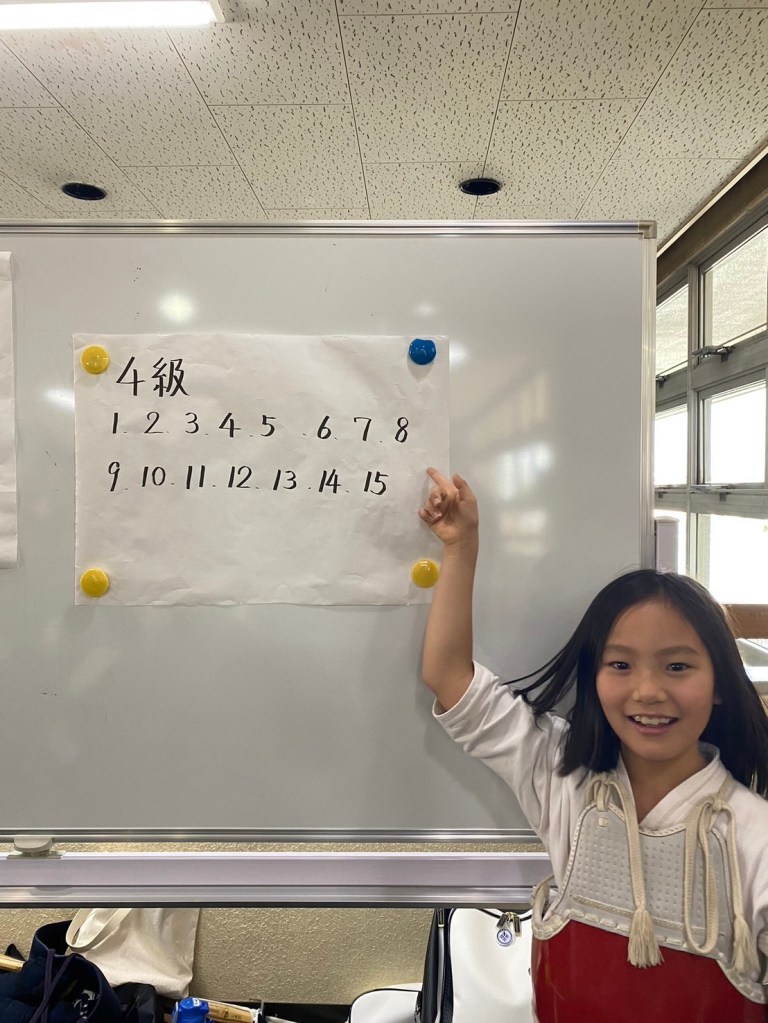 4級
1. 2. 3. 4. 5. 6. 7. 8
9. 10. 11. 12. 13. 14. 15